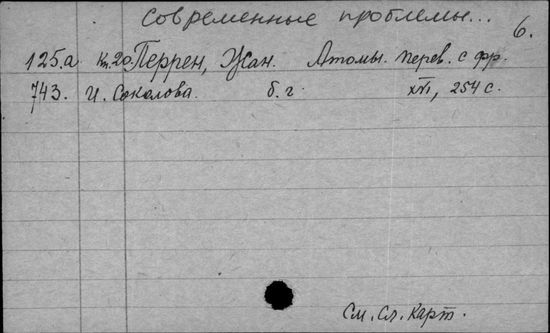 Современные проблемы... 6.
125.а Кн.20 Перрен, Жан. Атомы. Перев. с фр.
743. И. Соколова. б. г. XVI, 254 с.
См. Сл. Карт.